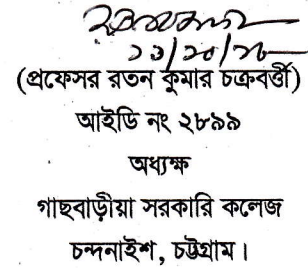 (প্রফেসর রতন কুমার চক্রবর্ত্তী)
আইডি নং ২৮৯৯
অধ্যক্ষ
গাছবাড়ীয়া সরকারি কলেজ
চন্দনাইশ, চট্টগ্রাম।